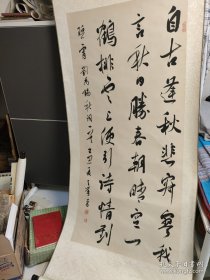 自古逢秋悲寂寥我
言秋日勝春朝晴空一
鶴排雲上便引詩情到
碧霄 劉禹錫秋詞